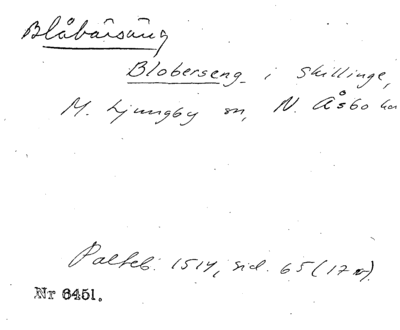 Blåbärsäng
Bloberseng i Skillinge,
M. Ljungby sn, N. Åsbo hd
Palteb. 1514, sid. 65 (17 )
Nr 6451.